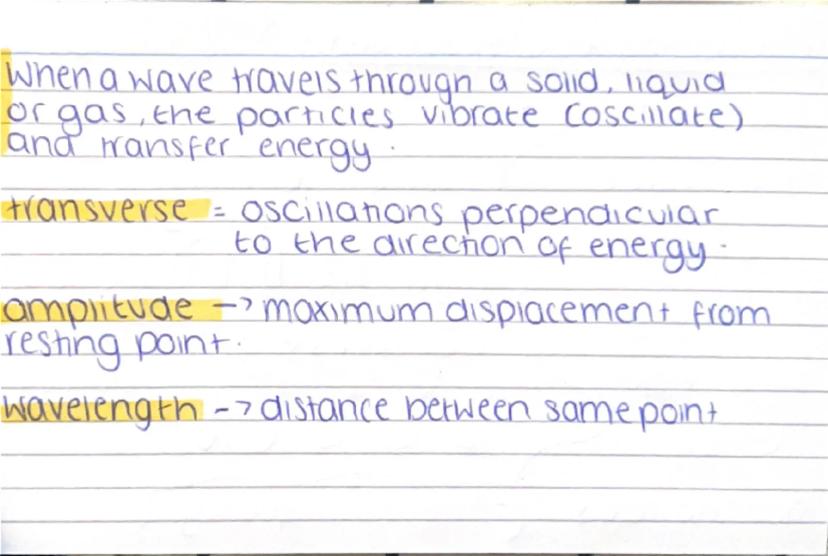 When a wave travels through a solid, liquid
or gas, the particles vibrate (oscillate)
and transfer energy.
transverse = oscillations perpendicular
to the direction of energy.
amplitude -> maximum displacement from
resting point.
wavelength -> distance between same point